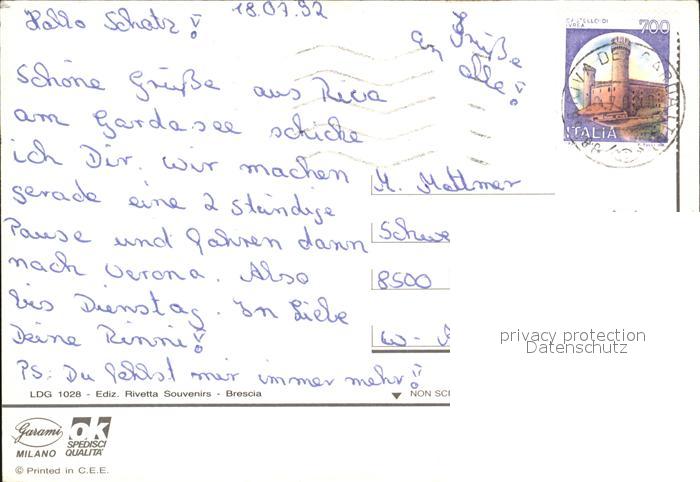 Hallo Schatz!
18.07.92
Grüße
an alle!
CASTELLO DI
IVREA
700
ITALIA
Schöne Grüße aus Riva
am Gardasee schicke
ich Dir. Wir machen
gerade eine 2 stündige
Pause und fahren dann
nach Verona. Also
bis Dienstag. In Liebe
Deine Rinni!
PS: Du fehlst mir immer mehr!
M. Mattmer
Schwe
8500
W-
privacy protection
Datenschutz
LDG 1028 - Ediz. Rivetta Souvenirs - Brescia
NON SC
Garami
MILANO
OK
SPEDISCI
QUALITA'
© Printed in C.E.E.